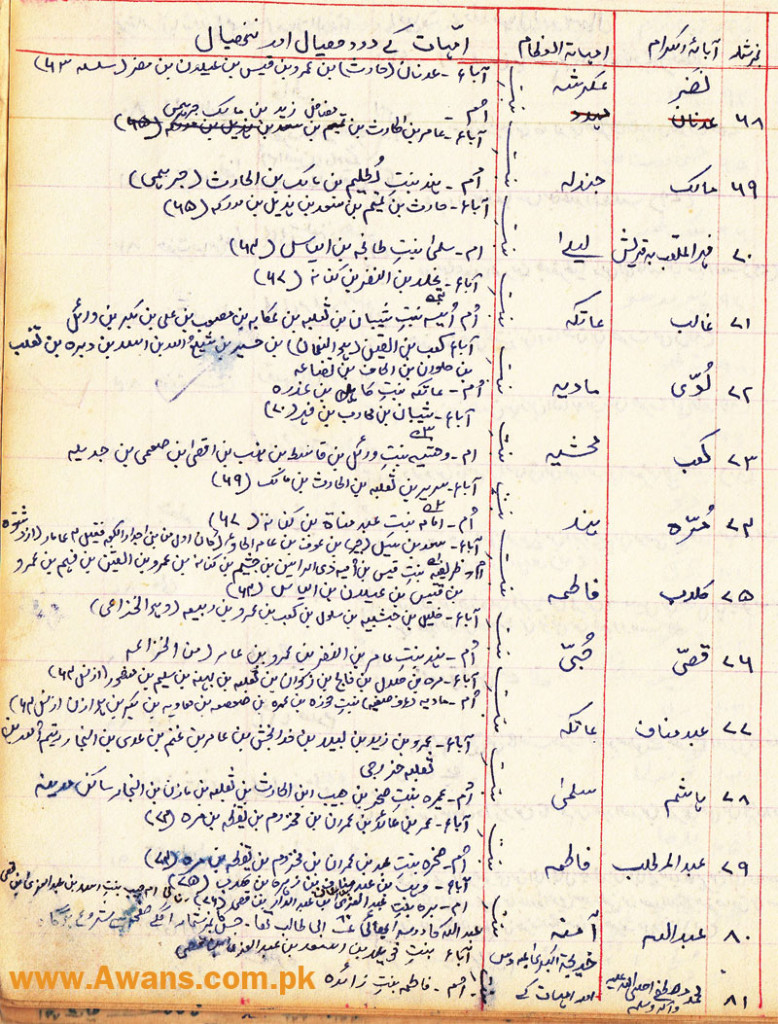 نمبرشمار آبائے اکرام امہاۃ العظام امّہات کے ددھیال اور ننھیال
نضر عکرشہ آباء - عدنان (حارث) بن عمرو بن قیس بن عیلان بن مضر (سلسلہ ۶۳)
۶۸ عدنان اُم
آباء - عامر بن الحارث بن
۶۹ مالک جندلہ اُم - ہند بنتِ بن مالک بن الحارث (جرہمی)
آباء - حارث بن تمیم بن سعد بن ہذیل بن مدرکہ (۶۵)
۷۰ فہر الملقب بہ قریش لیلیٰ ام - سلمیٰ بنتِ طابخہ بن الیاس (۶۴)
آباء - یخلد بن النضر بن کنانہ (۶۷)
۷۱ غالب عاتکہ اُم اُنیسہ بنتِ شیبان بن ثعلبہ بن عکابہ بن صعب بن علی بن بکر بن وائل
آباء کعب بن القین (ہو النعمان) بن جسیر بن شیع اللہ بن اسد بن وبرہ بن تغلب
بن حلوان بن الحاف بن قضاعہ
۷۲ لُوَیّ ماویہ اُم - عاتکہ بنتِ کاہل بن عذرہ
آباء - شیبان بن محارب بن فہر (۷۰)
۷۳ کعب مخشیہ ام - وحشیہ بنتِ وائل بن قاسط بن ہنب بن افصیٰ بن دعمی بن جدیلہ
آباء - سریر بن ثعلبہ بن الحارث بن مالک (۶۹)
۷۴ مُرّہ ہند اُم - امامہ بنتِ عبد مناۃ بن کنانہ (۶۷)
آباء - سعد بن سیل (خیر) بن عوف بن عامر
۷۵ کلاب فاطمہ اُم - ظریفہ بنتِ قیس بن اُمیہ ذی الراسین بن جشیم بن کنانہ بن عمرو بن القین بن فہم بن عمرو
بن قیس بن عیلان بن الیاس (۶۴)
آباء - حلیل بن حبشیہ بن سلول بن کعب بن عمرو بن ربیعہ (وہو الخزاعی)
۷۶ قصیّ حُبّیٰ اُم - ہند بنتِ عامر بن النضر بن عمرو بن عامر (من الخزاعہ
آباء - مرہ بن ہلال بن فالج بن ذکوان بن ثعلبہ بن بہثہ بن سلیم بن منصور (از نسل ۶۳)
۷۷ عبد مناف عاتکہ اُم - ماویہ بنتِ حوزہ بن عمرہ بن صعصعہ بن معاویہ بن بکر بن ہوازن از نسل ۶۳)
آباء - عمرو بن زید بن لبید بن خداش بن عامر بن غنم بن عدی بن النجار
ثعلبہ خزرجی
۷۸ ہاشم سلمیٰ اُم - عمیرہ بنتِ صخر بن حبیب ابن الحارث بن ثعلبہ بن مازن بن النجار ساکن مدینہ
آباء - عمر بن عائذ بن عمران بن مخزوم بن یقظہ بن مرہ (۷۴)
۷۹ عبد المطلب فاطمہ اُم - صخرہ بنتِ عبد بن عمران بن مخزوم بن یقظہ بن مرہ (۷۴)
آباء - وہب بن عبد مناف بن زہرہ بن کلاب (۷۵)
۸۰ عبداللہ آمنہ ام - برہ بنتِ عبدالعزیٰ بن عبدالدار بن قصی (۷۶)
عبداللہ کا دوسرا بھائی ابی طالب تھا - جس کا
خدیجۃ الکبریٰ آباء بنتِ خویلد بن اسد بن عبدالعزیٰ
۸۱ محمد مصطفٰے صلی اللہ علیہ وآلہ وسلم اور امہات کے اُم - فاطمہ بنتِ زائدہ
www.Awans.com.pk